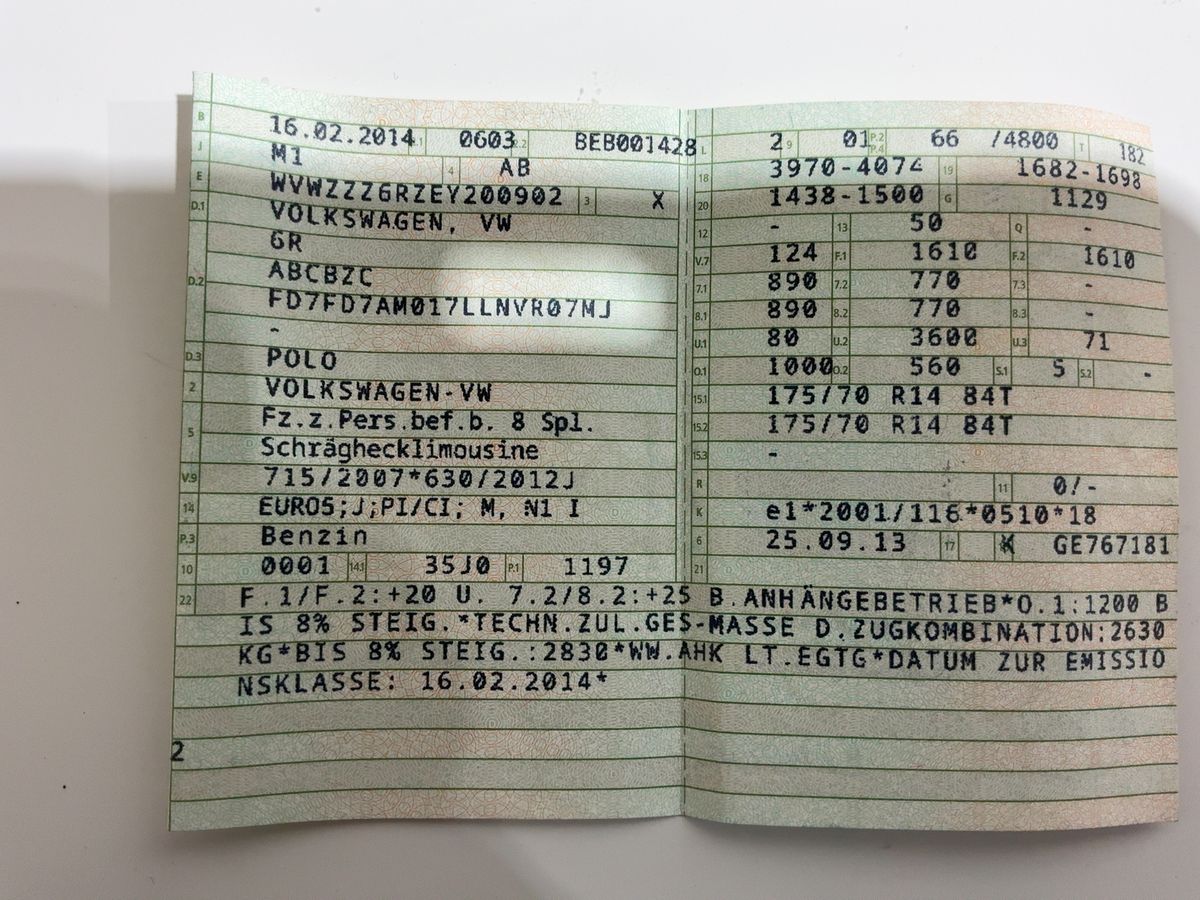 B 16.02.2014 2.1 0603 2.2 BEB001428
J M1 4 AB
E WVWZZZ6RZEY200902 3 X
D.1 VOLKSWAGEN, VW
6R
D.2 ABCBZC
FD7FD7AM017LLNVR07MJ
-
D.3 POLO
2 VOLKSWAGEN-VW
5 Fz.z.Pers.bef.b. 8 Spl.
Schräghecklimousine
V.9 715/2007*630/2012J
14 EURO5;J;PI/CI; M, N1 I
P.3 Benzin
10 0001 14.1 35J0 P.1 1197
L 2 9 01 P.2 P.4 66 /4800 T 182
18 3970-4074 19 1682-1698
20 1438-1500 G 1129
12 - 13 50 Q -
V.7 124 F.1 1610 F.2 1610
7.1 890 7.2 770 7.3 -
8.1 890 8.2 770 8.3 -
U.1 80 U.2 3600 U.3 71
O.1 1000 O.2 560 S.1 5 S.2 -
15.1 175/70 R14 84T
15.2 175/70 R14 84T
15.3 -
R 11 0/-
K e1*2001/116*0510*18
6 25.09.13 17 K GE767181
21
22 F.1/F.2:+20 U. 7.2/8.2:+25 B.ANHÄNGEBETRIEB*O.1:1200 B
IS 8% STEIG.*TECHN.ZUL.GES-MASSE D.ZUGKOMBINATION:2630
KG*BIS 8% STEIG.:2830*WW.AHK LT.EGTG*DATUM ZUR EMISSIO
NSKLASSE: 16.02.2014*
2